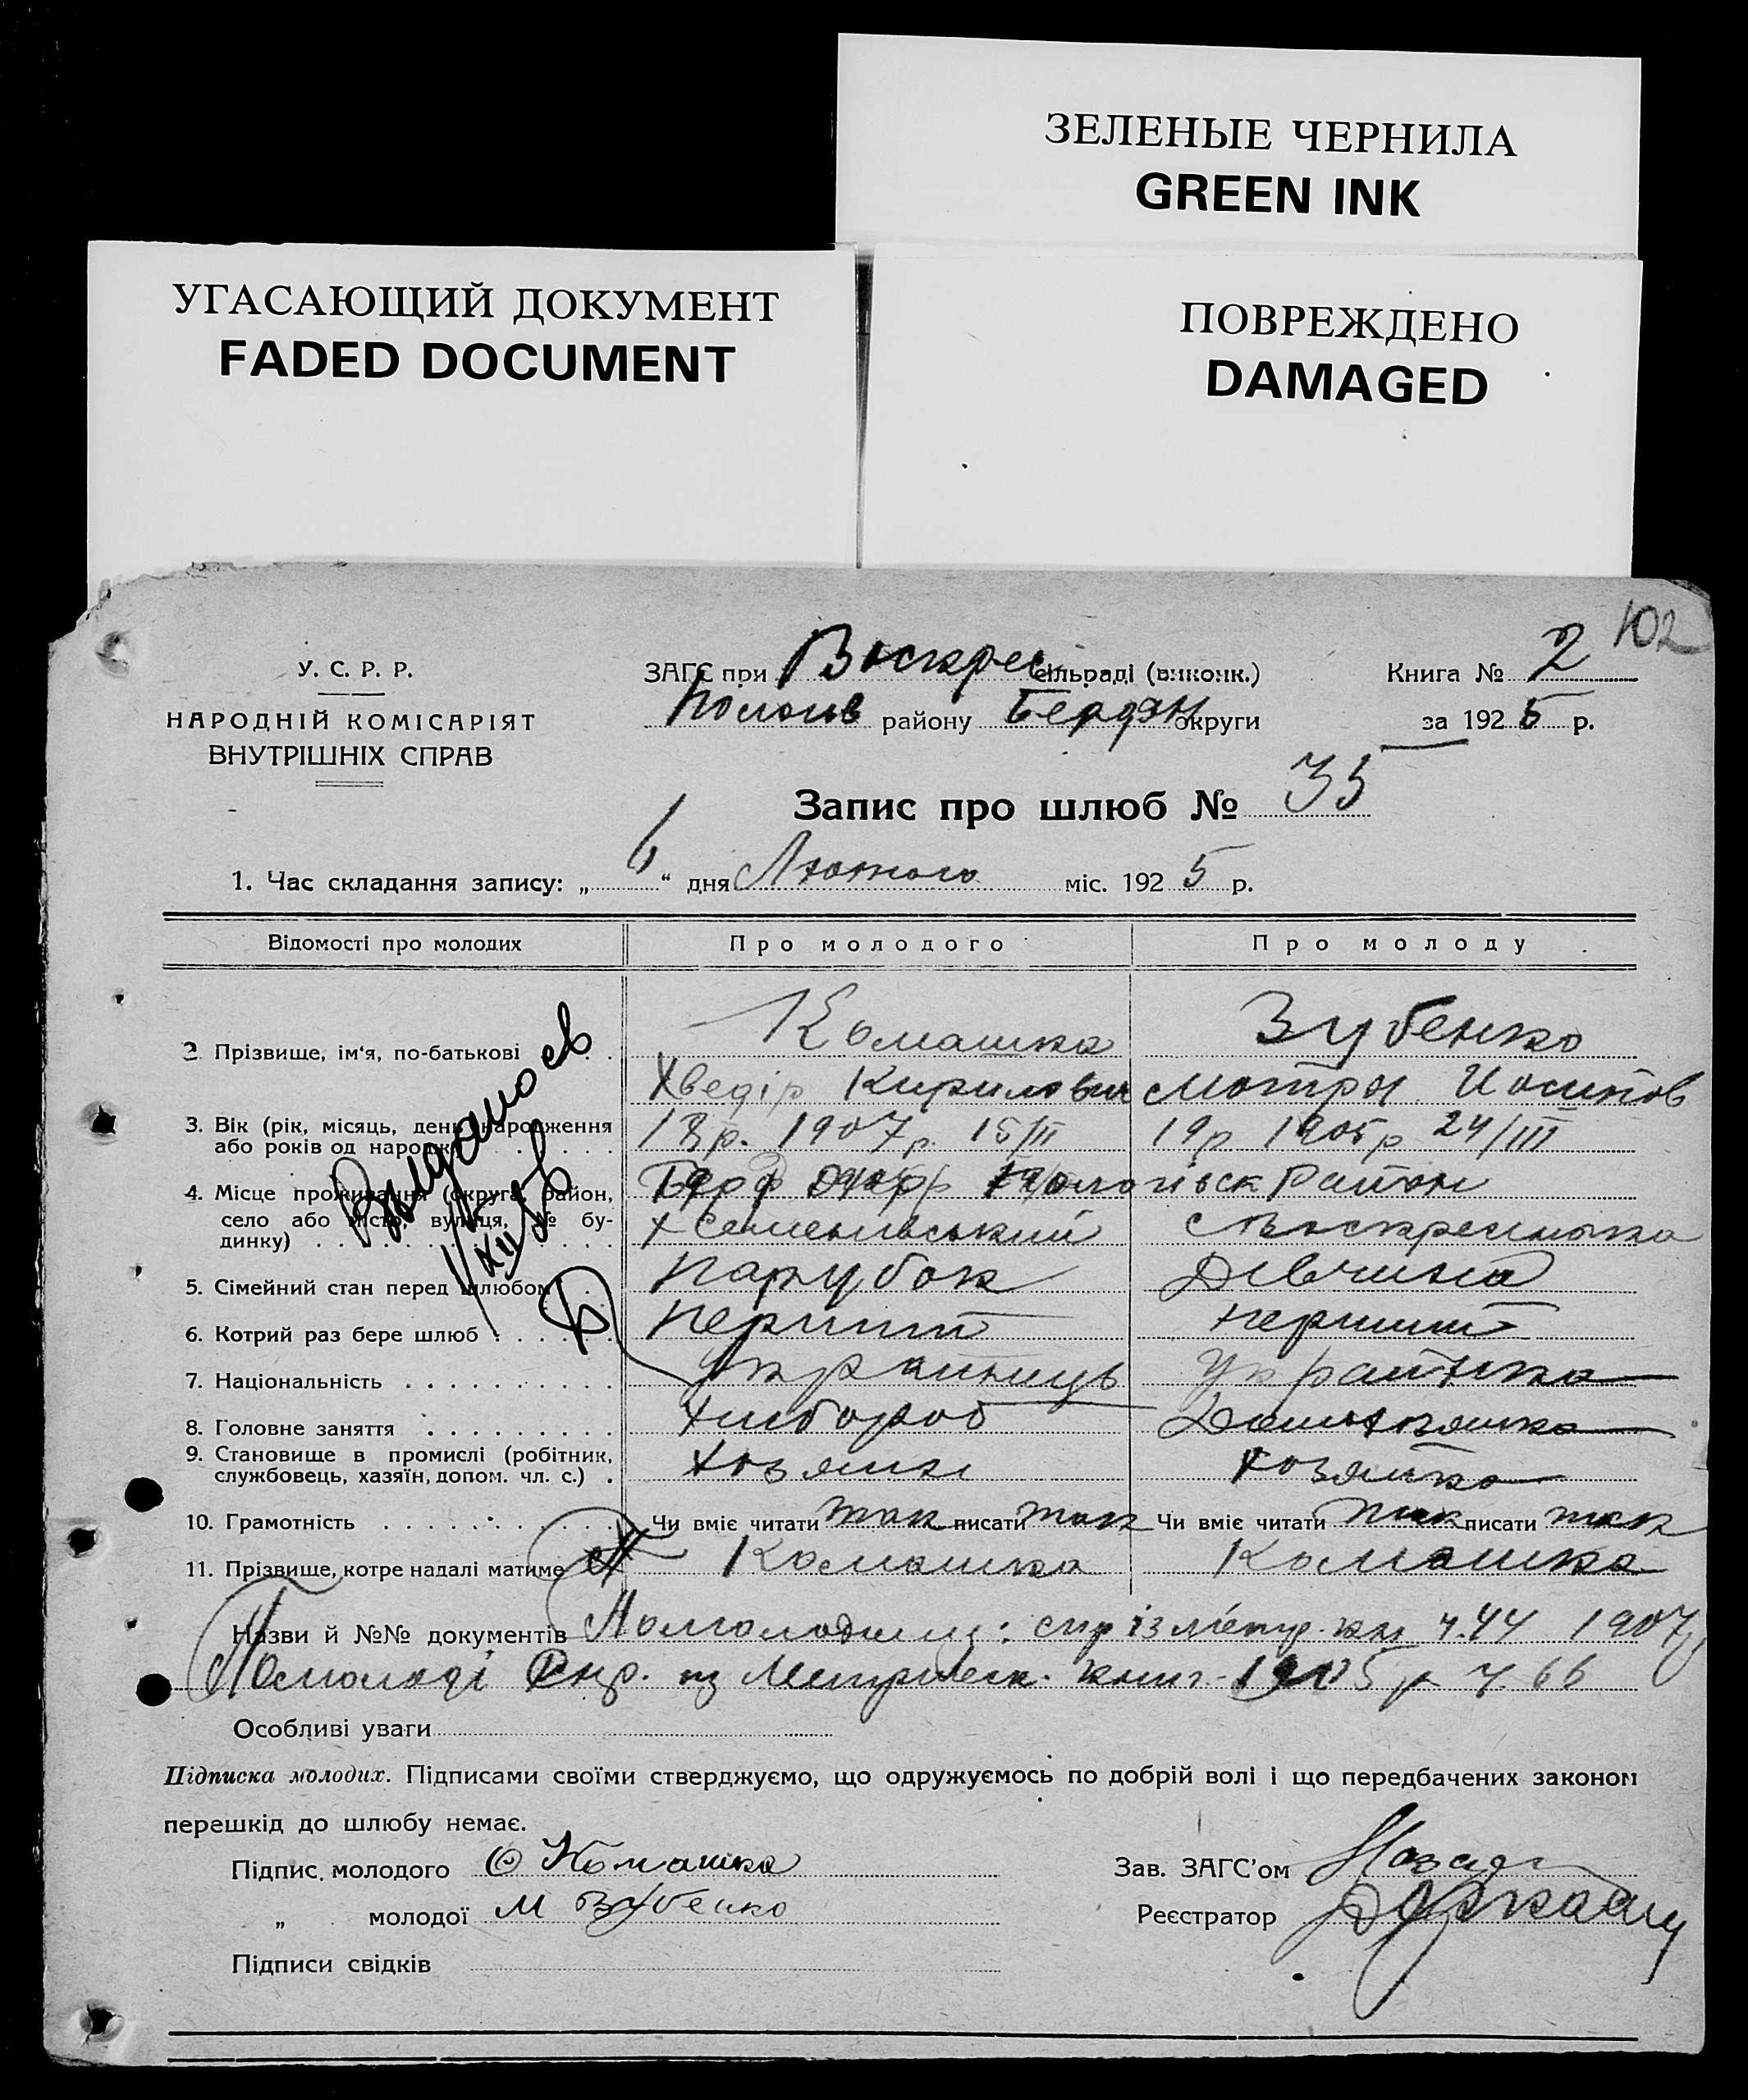 ЗЕЛЕНЫЕ ЧЕРНИЛА
GREEN INK
УГАСАЮЩИЙ ДОКУМЕНТ
FADED DOCUMENT
ПОВРЕЖДЕНО
DAMAGED
102
У. С. Р. Р.
НАРОДНІЙ КОМІСАРІЯТ
ВНУТРІШНІХ СПРАВ
ЗАГС при Воскрес сільраді (виконк.)
Пологів району Бердян округи
Книга № 2
за 1925 р.
Запис про шлюб № 35
1. Час складання запису: „ 6 “ дня Лютого міс. 1925 р.
Відомості про молодих Про молодого Про молоду
2 Прізвище, ім'я, по-батькові Комашка Зубенко
Хведір Кирилович Мотря Иосипов
3. Вік (рік, місяць, день народження 18 р. 1907 р. 15/II 19 р 1905 р 24/III
або років од народж.)
4. Місце проживання (округа, район, Пологівск Район
село або місто, вулиця, № бу- х Семенівський с Воскресенька
динку)
5. Сімейний стан перед шлюбом Парубок Дівчина
6. Котрий раз бере шлюб Перший перший
7. Національність Українець Українка
8. Головне заняття Хлібороб
9. Становище в промислі (робітник, Хозяин хозяйка
службовець, хазяїн, допом. чл. с.)
10. Грамотність Чи вміє читати так писати так Чи вміє читати так писати так
11. Прізвище, котре надалі матиме Комашка Комашка
Назви й №№ документів спр із метр. кн ч. 44 1907
По молоді Спр. из Метрическ. книг. 1905 р ч. 66
Особливі уваги
Підписка молодих. Підписами своїми стверджуємо, що одружуємось по добрій волі і що передбачених законом
перешкід до шлюбу немає.
Підпис молодого Ф Комашка Зав. ЗАГС'ом
„ молодої М Зубенко Реєстратор
Підписи свідків